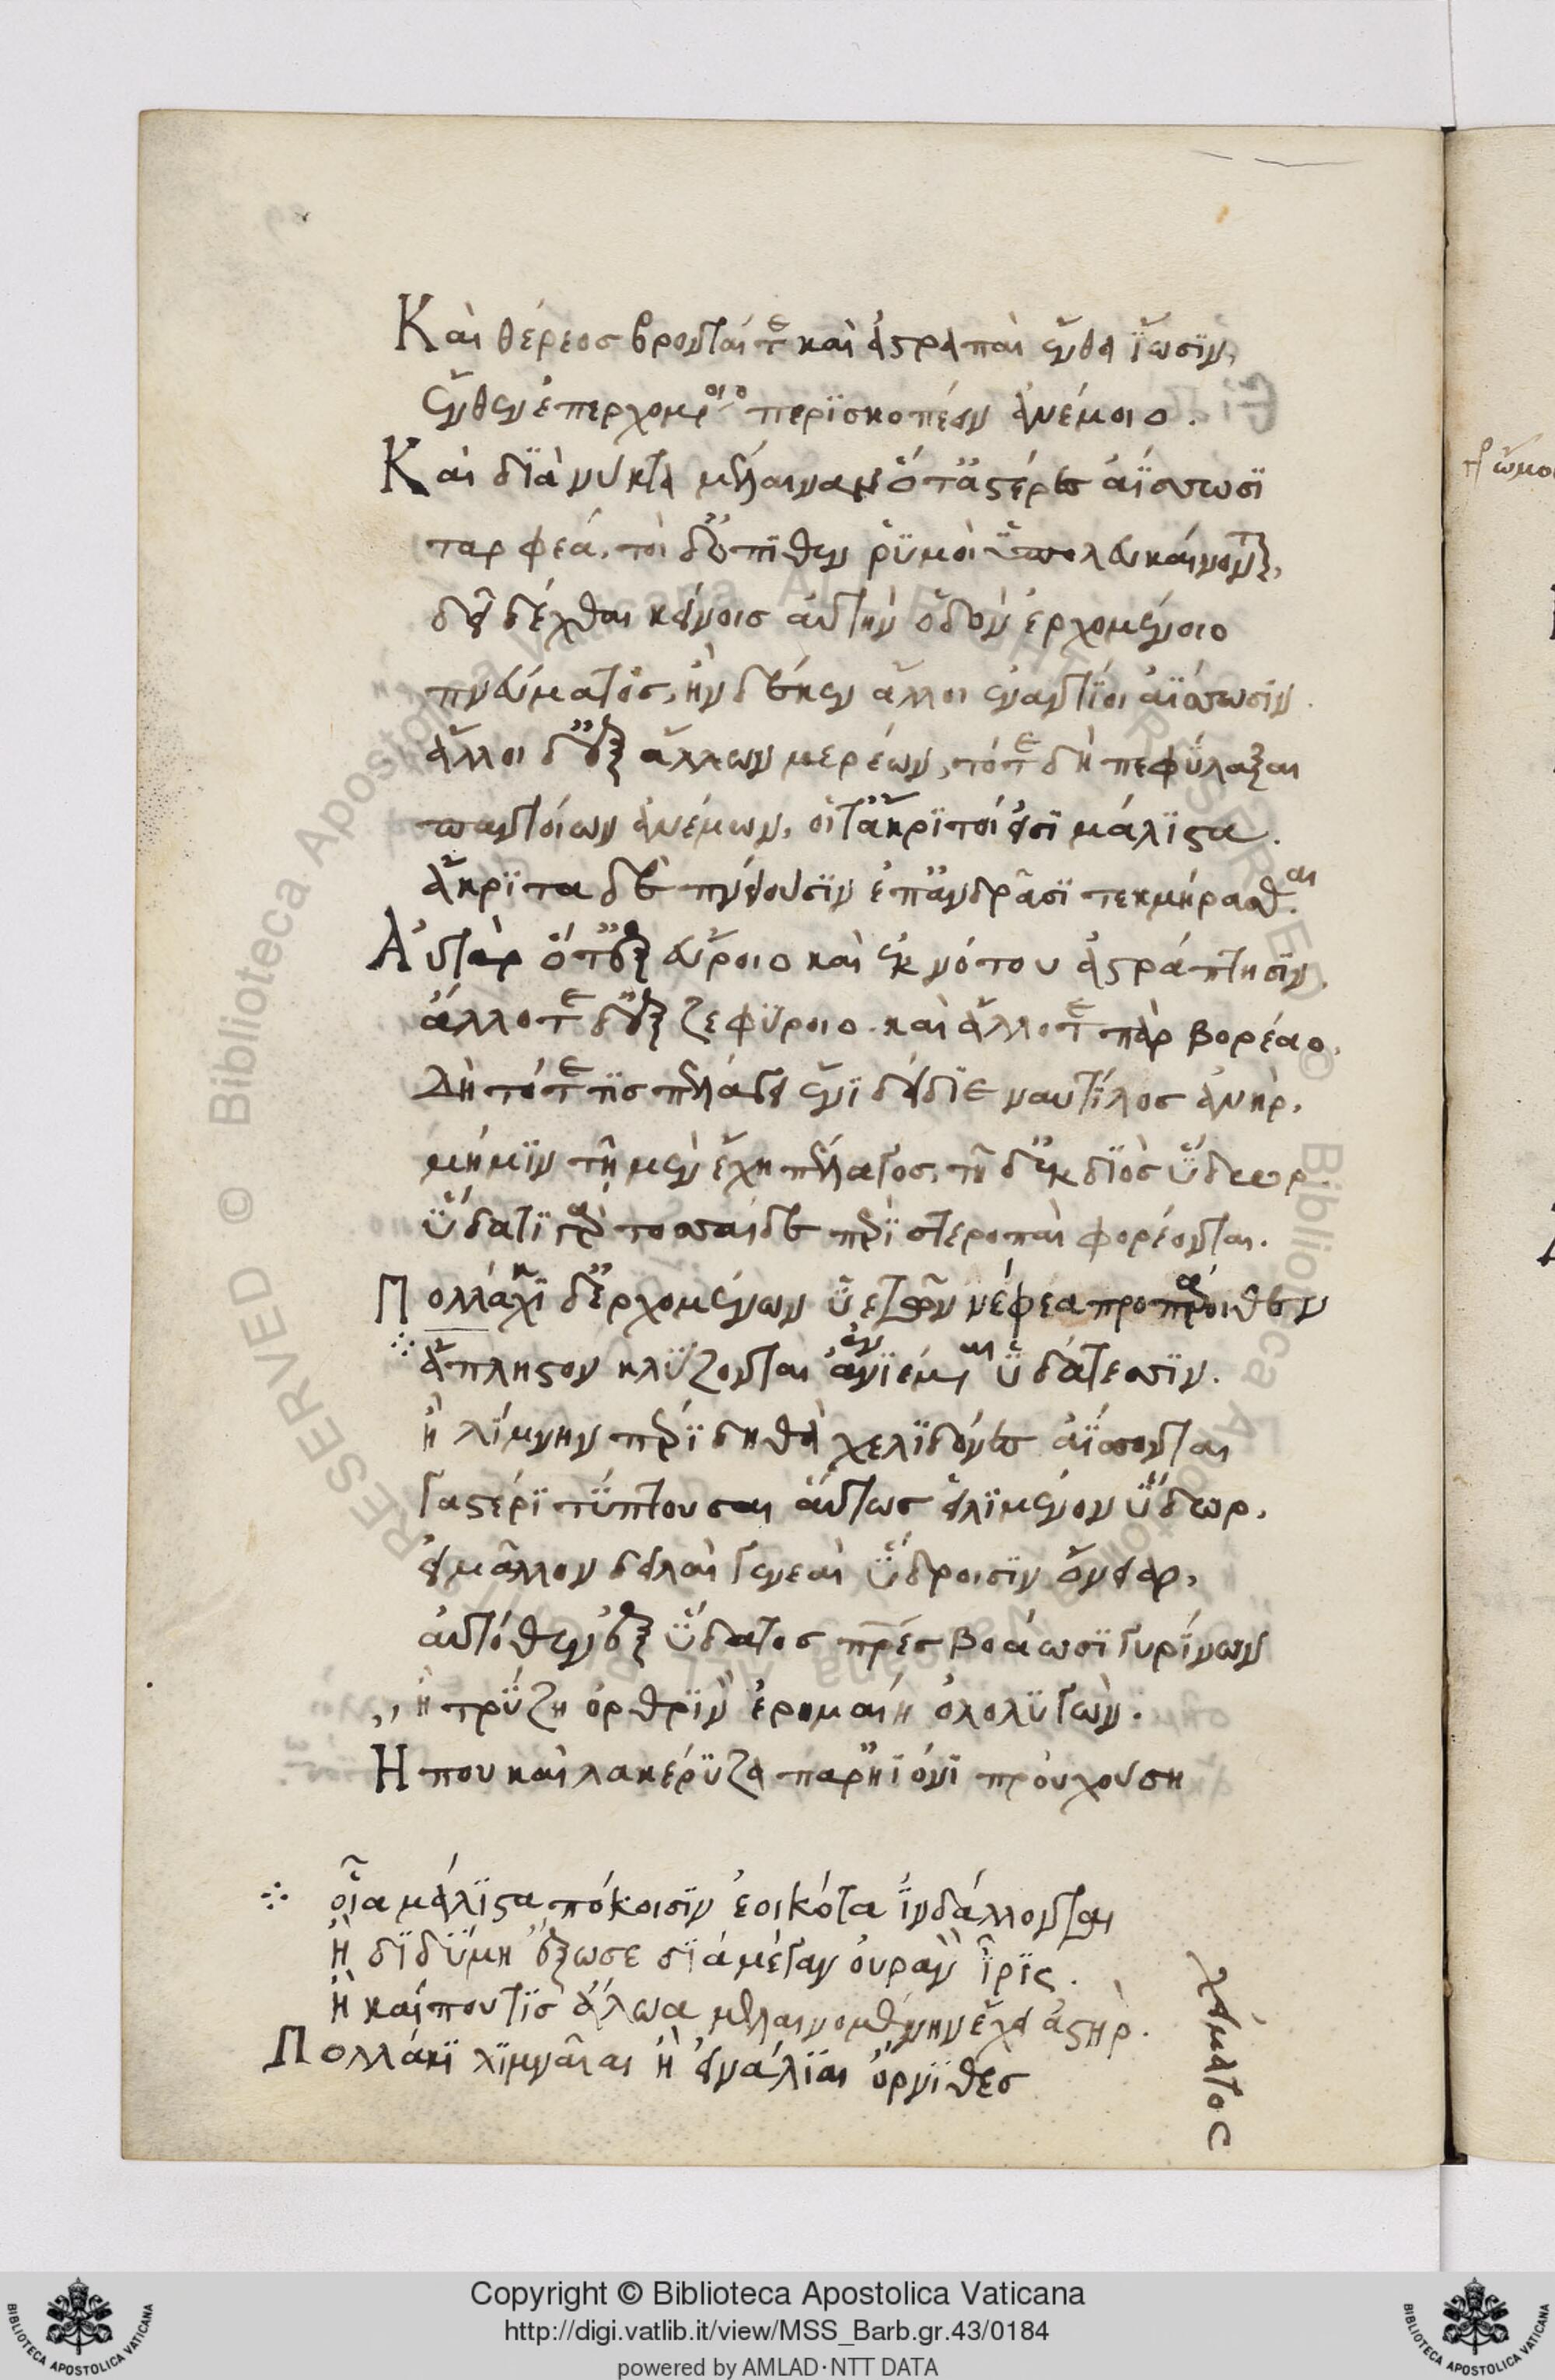 Καὶ θέρεος βρονταί τε καὶ ἀστραπαὶ ἔνθα ἴωσιν,
ἔνθεν ἐπερχομένοιο περισκοπέειν ἀνέμοιο.
Καὶ διὰ νύκτα μέλαιναν ὅτ' ἀστέρες ἀΐσσωσι
ταρφέα, τοὶ δ' ὄπιθεν ῥυμοὶ ὑπολευκαίνονται,
δειδέχθαι κείνοις αὐτὴν ὁδὸν ἐρχομένοιο
πνεύματος, ἢν δέ κεν ἄλλοι ἐναντίοι ἀΐσσωσιν.
ἄλλοι δ' ἐξ ἄλλων μερέων, τότε δὴ πεφύλαξαι
παντοίων ἀνέμων, οἵ τ' ἄκριτοί εἰσι μάλιστα.
ἄκριτα δὲ πνείουσιν ἐπ' ἀνδράσι τεκμήρασθαι.
Αὐτὰρ ὅτ' ἐξ εὔροιο καὶ ἐκ νότου ἀστράπτησιν,
ἄλλοτε δ' ἐξ ζεφύροιο. καὶ ἄλλοτε πὰρ βορέαο,
Δὴ τότε τις πελάγει ἔνι δείδιε ναυτίλος ἀνήρ,
μή μιν τῇ μὲν ἔχη πέλαγος, τῇ δ' ἐκ διὸς ὕδωρ.
ὕδατι γὰρ τοσσαίδε περὶ στεροπαὶ φορέονται.
Πολλάκι δ' ἐρχομένων ὑετῶν νέφεα προπάροιθεν
⁘ ἄπληστον κλύζονται ἐνιέμεναι ὑδάτεσσιν.
ἢ λίμνην περὶ δηθὰ χελιδόνες ἀΐσσονται
γαστέρι τύπτουσαι αὔτως εἰλιμένον ὕδωρ,
ἢ μᾶλλον δειλαὶ γενεαὶ ὕδροισιν ὄνειαρ,
αὐτόθεν ἐξ ὕδατος πατέρες βοάωσι γυρίνων
ἢ τρύζῃ ὀρθρινὸν ἐρημαίη ὀλολυγών.
Ἤ που καὶ λακέρυζα παρ' ἠϊόνι προὐχούσῃ
⁘ οἷα μάλιστα πόκοισιν ἐοικότα ἰνδάλλονται
ἢ διδύμη ἔζωσε διὰ μέγαν οὐρανὸν ἶρις.
ἢ καί πού τις ἅλωα μελαινομένην ἔχει ἀστήρ.
Πολλάκι λιμναῖαι ἢ εἰνάλιαι ὄρνιθες
χείματος
Copyright © Biblioteca Apostolica Vaticana
http://digi.vatlib.it/view/MSS_Barb.gr.43/0184
powered by AMLAD·NTT DATA